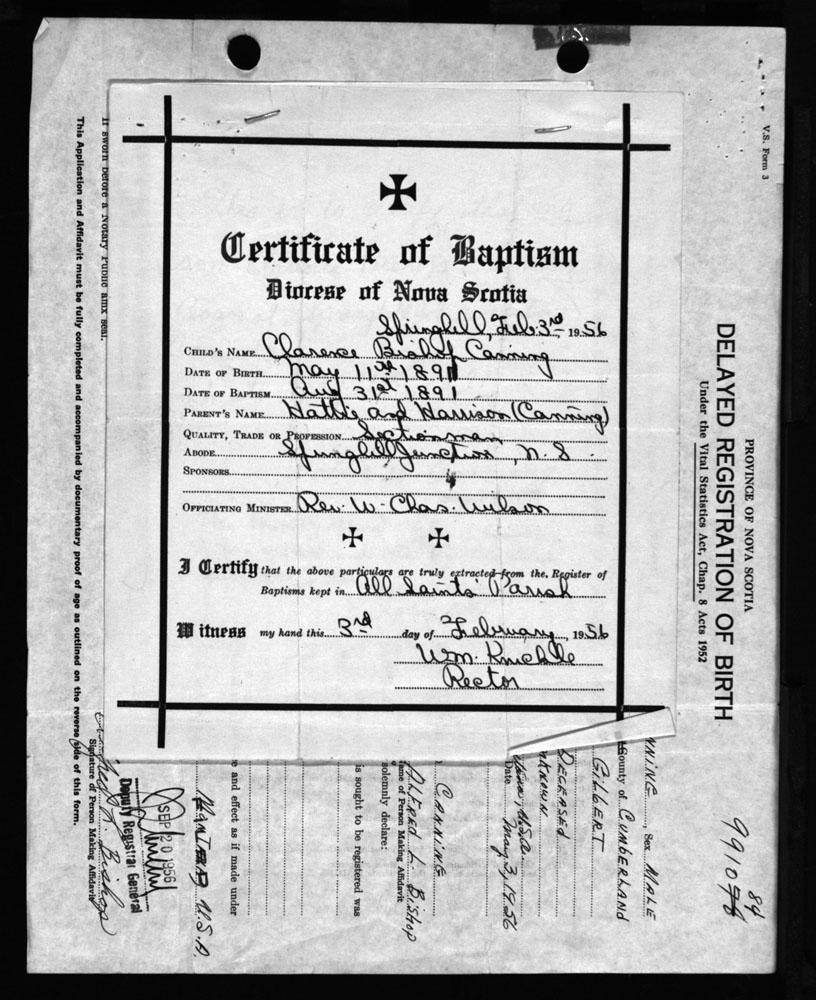 Certificate of Baptism
Diocese of Nova Scotia
Springhill, Feb. 3rd, 1956
CHILD'S NAME Clarence Bishop Canning
DATE OF BIRTH May 11th 1891
DATE OF BAPTISM Aug 31st 1891
PARENT'S NAME Hattie and Harrison (Canning)
QUALITY, TRADE OR PROFESSION Sectionman
ABODE Springhill Junction, N.S.
SPONSORS
OFFICIATING MINISTER Rev. W. Chas. Wilson
I Certify that the above particulars are truly extracted from the Register of
Baptisms kept in All Saints' Parish
Witness my hand this 3rd day of February, 1956
Wm. Knickle
Rector
V.S. Form 3
PROVINCE OF NOVA SCOTIA
DELAYED REGISTRATION OF BIRTH
Under the Vital Statistics Act, Chap. 8 Acts 1952
84
991078
NNING, Sex MALE
County of CUMBERLAND
GILBERT
DECEASED
KNOWN
Date May 3, 1956
CANNING
ALFRED L. BISHOP
Name of Person Making Affidavit
solemnly declare:
is sought to be registered was
e and effect as if made under
U.S.A.
SEP 20 1956
Deputy Registrar General
L. Bishop
Signature of Person Making Affidavit
If sworn before a Notary Public amx seal.
This Application and Affidavit must be fully completed and accompanied by documentary proof of age as outlined on the reverse side of this form.